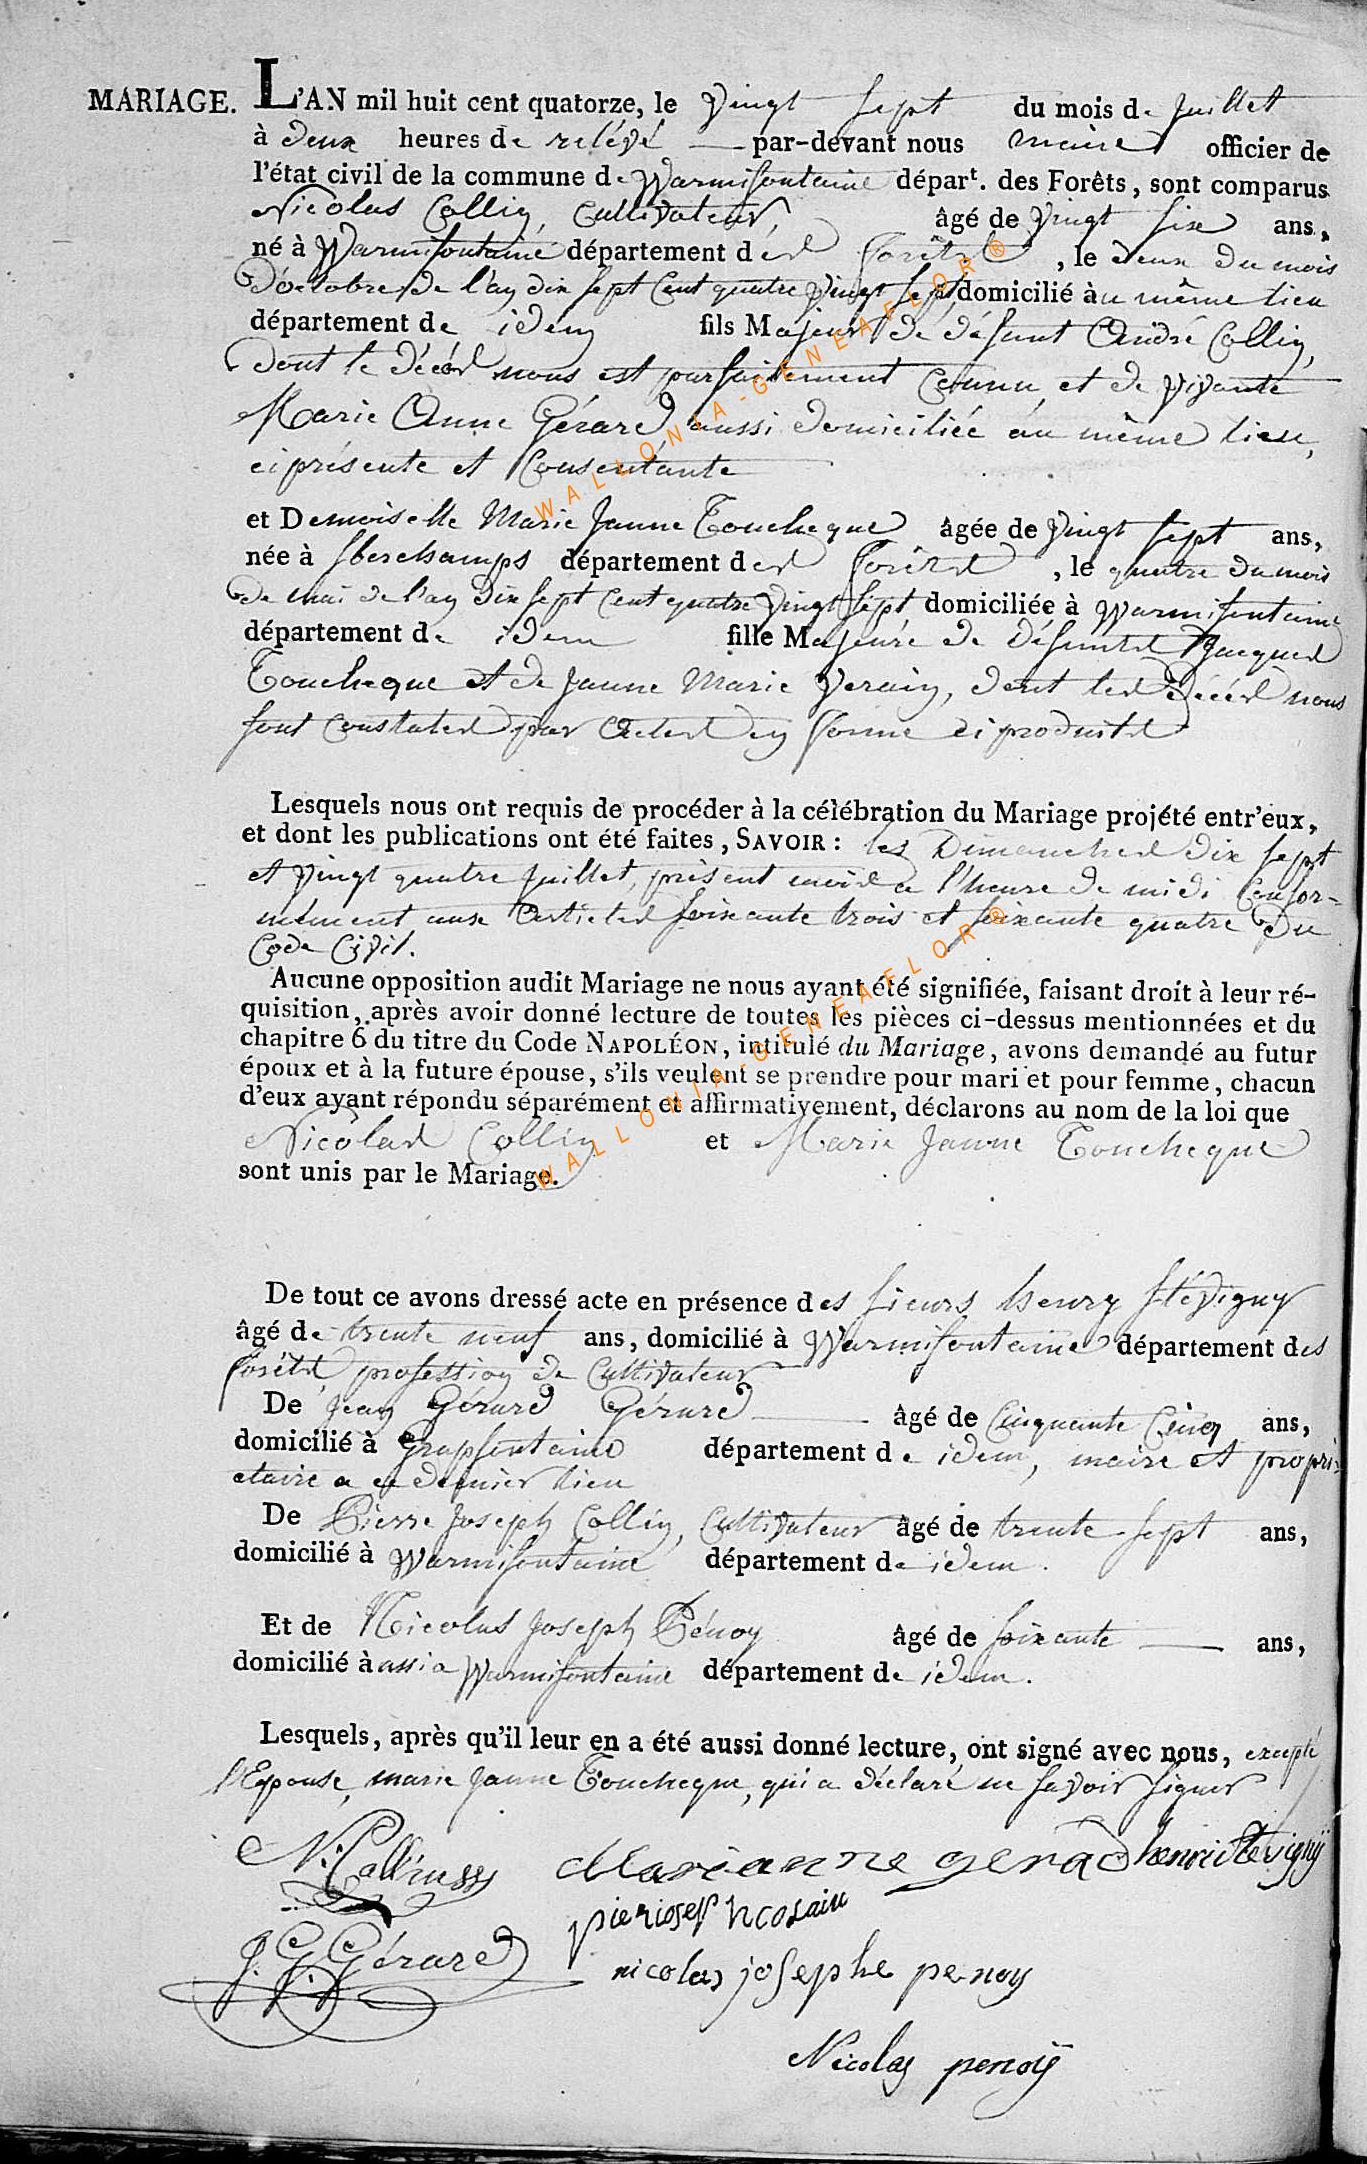 MARIAGE. L'AN mil huit cent quatorze, le Vingt Sept du mois de Juillet
à deux heures de relévé par-devant nous maire officier de
l'état civil de la commune de Warmifontaine départ. des Forêts, sont comparus
Nicolas Collin, Cultivateur, âgé de Vingt Six ans,
né à Warmifontaine département des Forêts, le deux du mois
d'octobre de l'an dix sept Cent quatre Vingt Sept domicilié au même lieu
département de idem fils Majeur de défunt André Collin,
dont le décès nous est parfaitement Connu, et de vivante
Marie Anne Gérard, aussi domiciliée au même lieu,
ci présente et Consentante
et Demoiselle Marie Jeanne Toucheque âgée de Vingt Sept ans,
née à département des Forêts, le quatre du mois
de mai de l'an dix sept Cent quatre Vingt Sept domiciliée à Warmifontaine
département de idem fille Majeure de défunts Jacques
Toucheque et de Jeanne Marie Verain, dont les décès nous
sont Constatés par Actes en forme ci produits
Lesquels nous ont requis de procéder à la célébration du Mariage projété entr'eux,
et dont les publications ont été faites, SAVOIR : les Dimanches dix Sept
et Vingt quatre Juillet, présent mois a l'heure de midi Confor-
mément aux Articles soixante trois et soixante quatre du
Code Civil.
Aucune opposition audit Mariage ne nous ayant été signifiée, faisant droit à leur ré-
quisition, après avoir donné lecture de toutes les pièces ci-dessus mentionnées et du
chapitre 6 du titre du Code NAPOLÉON, intitulé du Mariage, avons demandé au futur
époux et à la future épouse, s'ils veulent se prendre pour mari et pour femme, chacun
d'eux ayant répondu séparément et affirmativement, déclarons au nom de la loi que
Nicolas Collin et Marie Jeanne Toucheque
sont unis par le Mariage.
De tout ce avons dressé acte en présence des Sieurs henry Stévigny
âgé de trente neuf ans, domicilié à Warmifontaine département des
forêts profession de Cultivateur
De Jean Gérard Gérard âgé de Cinquante Cinq ans,
domicilié à Grapfontaine département de idem, maire et propri-
étaire a ce dernier lieu
De Pierre Joseph Collin, Cultivateur âgé de trente Sept ans,
domicilié à Warmifontaine département de idem.
Et de Nicolas Joseph Pénoy âgé de soixante ans,
domicilié à aussi a Warmifontaine département de idem.
Lesquels, après qu'il leur en a été aussi donné lecture, ont signé avec nous, excepté
l'Epouse, marie Jeanne Toucheque, qui a déclaré ne savoir signer
N: Collin
Marianne gerard henri Stevigny
J. G. Gérard
nicolas josephe penoy
Nicolas penoÿ
WALLONIA-GENEAFLOR®
WALLONIA-GENEAFLOR®